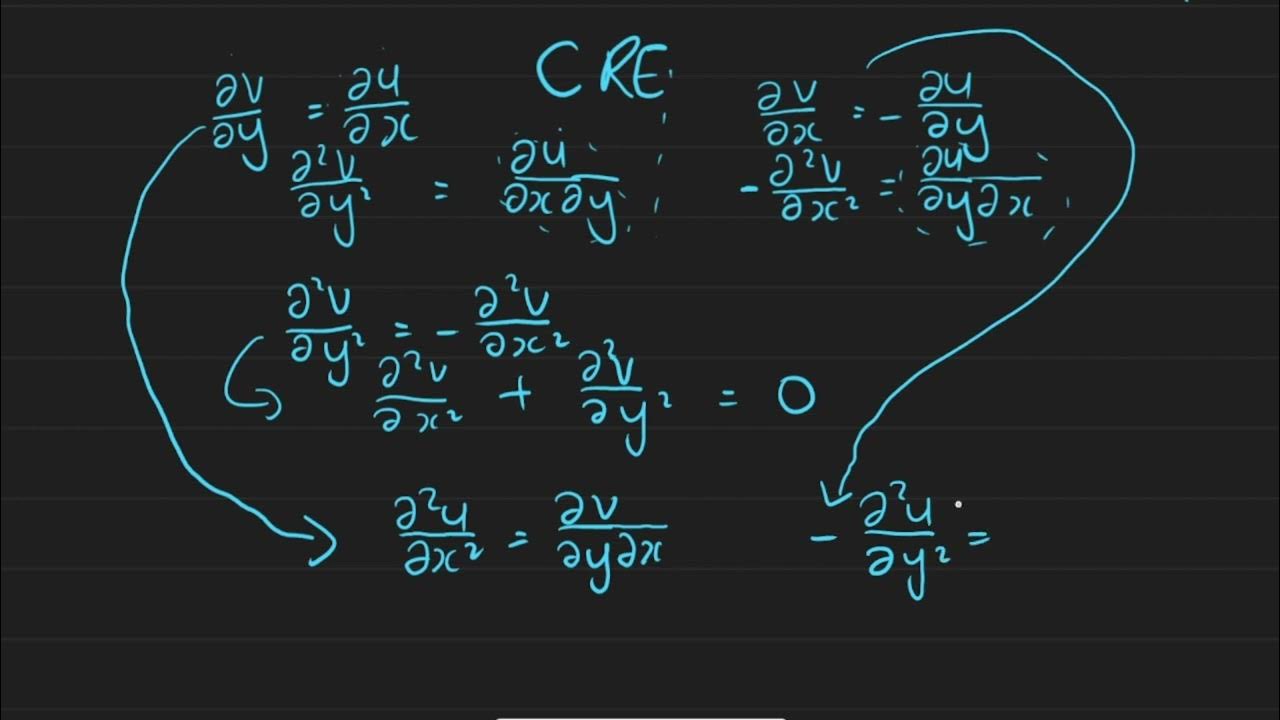 CRE
∂v/∂y = ∂u/∂x    ∂v/∂x = - ∂u/∂y
∂²v/∂y² = ∂u/∂x∂y    - ∂²v/∂x² = ∂u/∂y∂x
∂²v/∂y² = - ∂²v/∂x²
∂²v/∂x² + ∂²v/∂y² = 0
∂²u/∂x² = ∂v/∂y∂x    - ∂²u/∂y² =